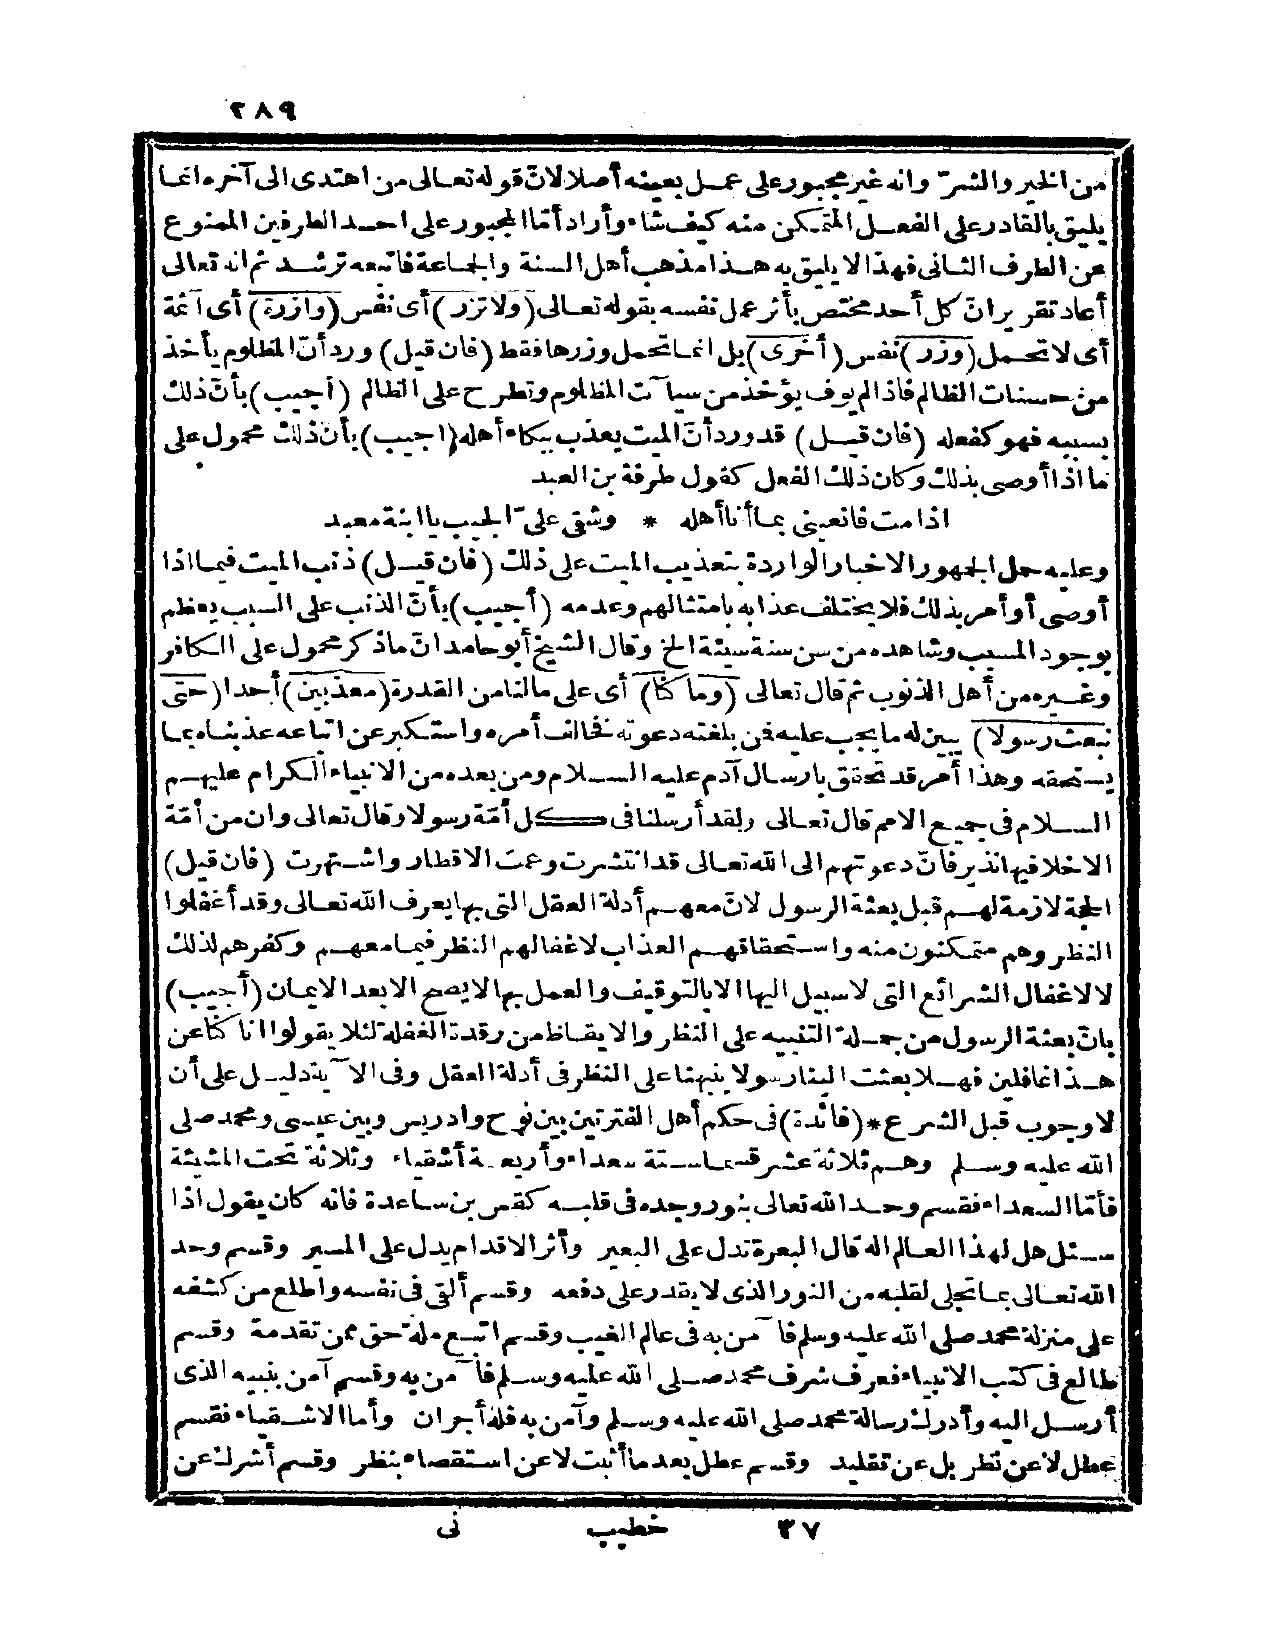 ٢٨٩
من الخير والشرّ وانه غير مجبور على عمل بعينه أصلا لانّ قوله تعالى من اهتدى الى آخره انما
يليق بالقادر على الفعل المتمكن منه كيف شاء وأراد أمّا المجبور على احد الطرفين الممنوع
عن الطرف الثانى فهذا لا يليق به هذا مذهب أهل السنة والجماعة فاتبعه ترشد ثم انه تعالى
أعاد تقرير انّ كل أحد مختص بأثر عمل نفسه بقوله تعالى (ولا تزر) أى نفس (وازرة) أى آثمة
أى لا تحمل (وزر) نفس (أخرى) بل انما تحمل وزرها فقط (فان قيل) ورد أنّ المظلوم يأخذ
من حسنات الظالم فاذا لم يوف يؤخذ من سيآت المظلوم وتطرح على الظالم (أجيب) بأنّ ذلك
بسببه فهو كفعله (فان قيل) قد ورد أنّ الميت يعذب ببكاء أهله (اجيب) بأن ذلك محمول على
ما اذا أوصى بذلك وكان ذلك الفعل كقول طرفة بن العبد
اذا مت فانعينى بما أنا أهله * وشقى علىّ الجيب يا ابنة معبد
وعليه حمل الجمهور الاخبار الواردة بتعذيب الميت على ذلك (فان قيل) ذنب الميت فيما اذا
أوصى أو أمر بذلك فلا يختلف عذابه بامتثالهم وعدمه (أجيب) بأنّ الذنب على السبب يعظم
بوجود المسبب وشاهده من سن سنة سيئة الخ وقال الشيخ أبو حامد انّ ما ذكر محمول على الكافر
وغيره من أهل الذنوب ثم قال تعالى (وما كنّا) أى على ما لنا من القدرة (معذبين) أحدا (حتى
نبعث رسولا) يبين له ما يجب عليه فمن بلغته دعوته فخالف أمره واستكبر عن اتباعه عذبناه بما
يستحقه وهذا أمر قد تحقق بارسال آدم عليه السلام ومن بعده من الانبياء الكرام عليهم
السلام فى جميع الامم قال تعالى ولقد أرسلنا فى كل أمّة رسولا وقال تعالى وان من أمّة
الا خلا فيها نذير فانّ دعوتهم الى الله تعالى قد انتشرت وعمت الاقطار واشتهرت (فان قيل)
الحجة لازمة لهم قبل بعثة الرسول لانّ معهم أدلة العقل التى بها يعرف الله تعالى وقد أغفلوا
النظر وهم متمكنون منه واستحقاقهم العذاب لاغفالهم النظر فيما معهم وكفرهم لذلك
لا لاغفال الشرائع التى لا سبيل اليها الا بالتوقيف والعمل بها لا يصح الا بعد الايمان (أجيب)
بانّ بعثة الرسول من جملة التنبيه على النظر والايقاظ من رقدة الغفلة لئلا يقولوا انا كنّا عن
هذا غافلين فهلا بعثت الينا رسولا ينبهنا على النظر فى أدلة العقل وفى الآية دليل على أن
لا وجوب قبل الشرع * (فائدة) فى حكم أهل الفترتين بين نوح وادريس وبين عيسى ومحمد صلى
الله عليه وسلم وهم ثلاثة عشر قسما ستة سعداء وأربعة أشقياء وثلاثة تحت المشيئة
فأمّا السعداء فقسم وحد الله تعالى بنور وجده فى قلبه كقس بن ساعدة فانه كان يقول اذا
سئل هل لهذا العالم اله قال البعرة تدل على البعير وأثر الاقدام يدل على المسير وقسم وحد
الله تعالى بما تجلى لقلبه من النور الذى لا يقدر على دفعه وقسم ألقى فى نفسه واطلع من كشفه
على منزلة محمد صلى الله عليه وسلم فآمن به فى عالم الغيب وقسم اتبع ملة حق ممن تقدمة وقسم
طالع فى كتب الانبياء فعرف شرف محمد صلى الله عليه وسلم فآمن به وقسم آمن بنبيه الذى
أرسل اليه وأدرك رسالة محمد صلى الله عليه وسلم وآمن به فله أجران وأما الاشقياء فقسم
عطل لا عن نظر بل عن تقليد وقسم عطل بعد ما أثبت لا عن استقصاء بنظر وقسم أشرك عن
٣٧ خطيب نى